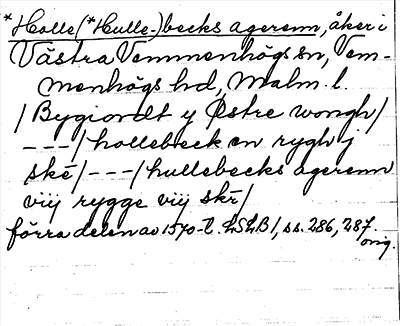 *Holle(*Hulle-)becks agerenn, åker i
Västra Vemmenhögs sn, Vem-
menhögs hd, Malm. l.
/Bygiondt y Østre wongh/
---/hollebeck en rygh j
skē/---/hullebecks agerenn
viij rygge viij skr̄/
förra delen av 1570-t. LSLB1, ss. 286, 287.
orig.